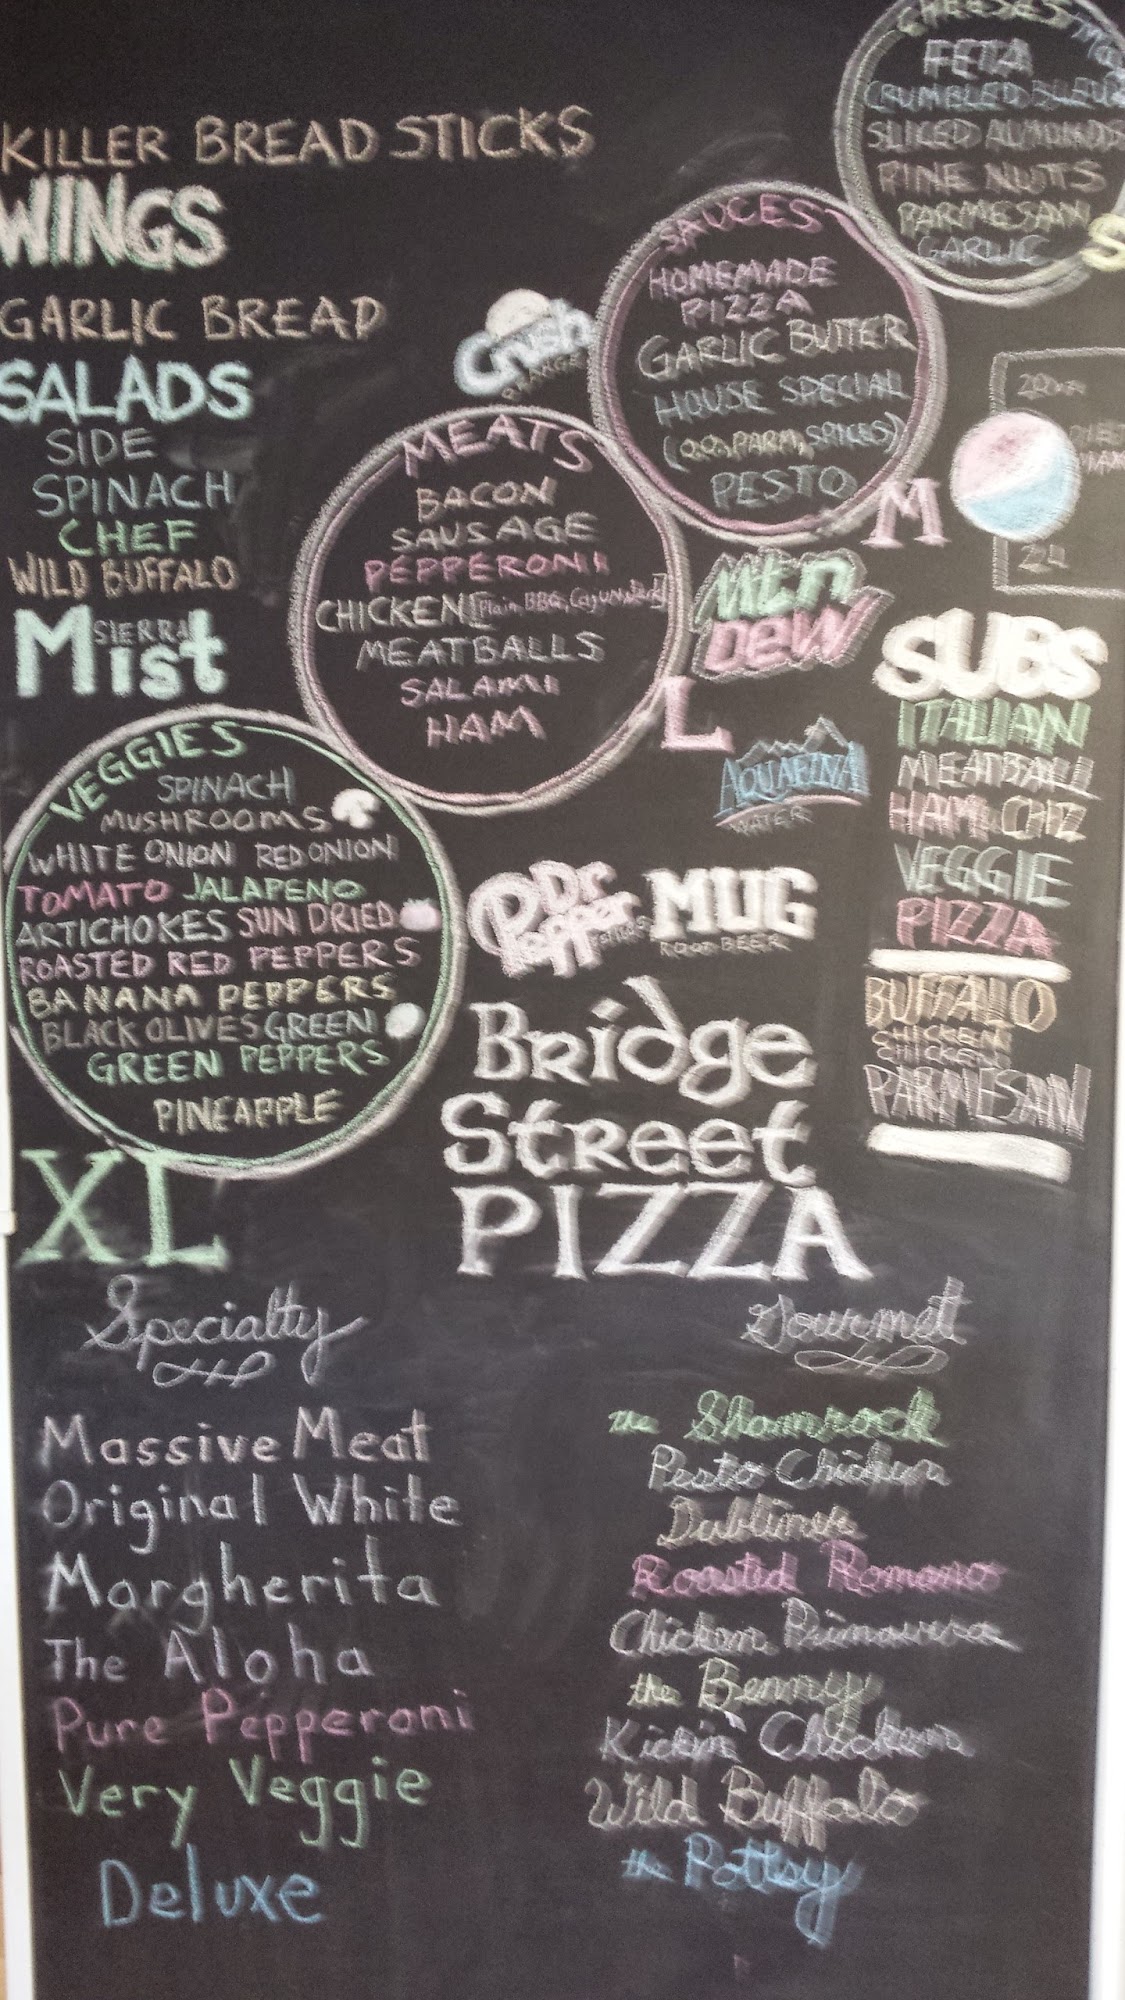 KILLER BREAD STICKS
WINGS
GARLIC BREAD
SALADS
SIDE
SPINACH
CHEF
WILD BUFFALO
SIERRA
Mist
CHEESES
FETA
CRUMBLED BLEU
SLICED ALMONDS
PINE NUTS
PARMESAN
GARLIC
S
SAUCES
HOMEMADE
PIZZA
GARLIC BUTTER
HOUSE SPECIAL
PARM, SPICES)
PESTO
M
Crush
ORANGE
MEATS
BACON
SAUSAGE
PEPPERONI
CHICKEN [Plain, BBQ, Cajun,
MEATBALLS
SALAMI
HAM
L
20oz
2L
Mtn
Dew
AQUAFINA
WATER
SUBS
ITALIAN
MEATBALL
HAM & CHZ
VEGGIE
PIZZA
BUFFALO
CHICKEN
CHICKEN
PARMESAN
VEGGIES
SPINACH
MUSHROOMS
WHITE ONION RED ONION
TOMATO JALAPENO
ARTICHOKES SUN DRIED
ROASTED RED PEPPERS
BANANA PEPPERS
BLACK OLIVES GREEN
GREEN PEPPERS
PINEAPPLE
XL
Dr
Pepper
MUG
ROOT BEER
Bridge
Street
PIZZA
Specialty
Massive Meat
Original White
Margherita
The Aloha
Pure Pepperoni
Very Veggie
Deluxe
Gourmet
the Shamrock
Pesto Chicken
Dubliner
Roasted Romano
Chicken Primavera
the Benny
Kickin' Chicken
Wild Buffalo
the Pottsy